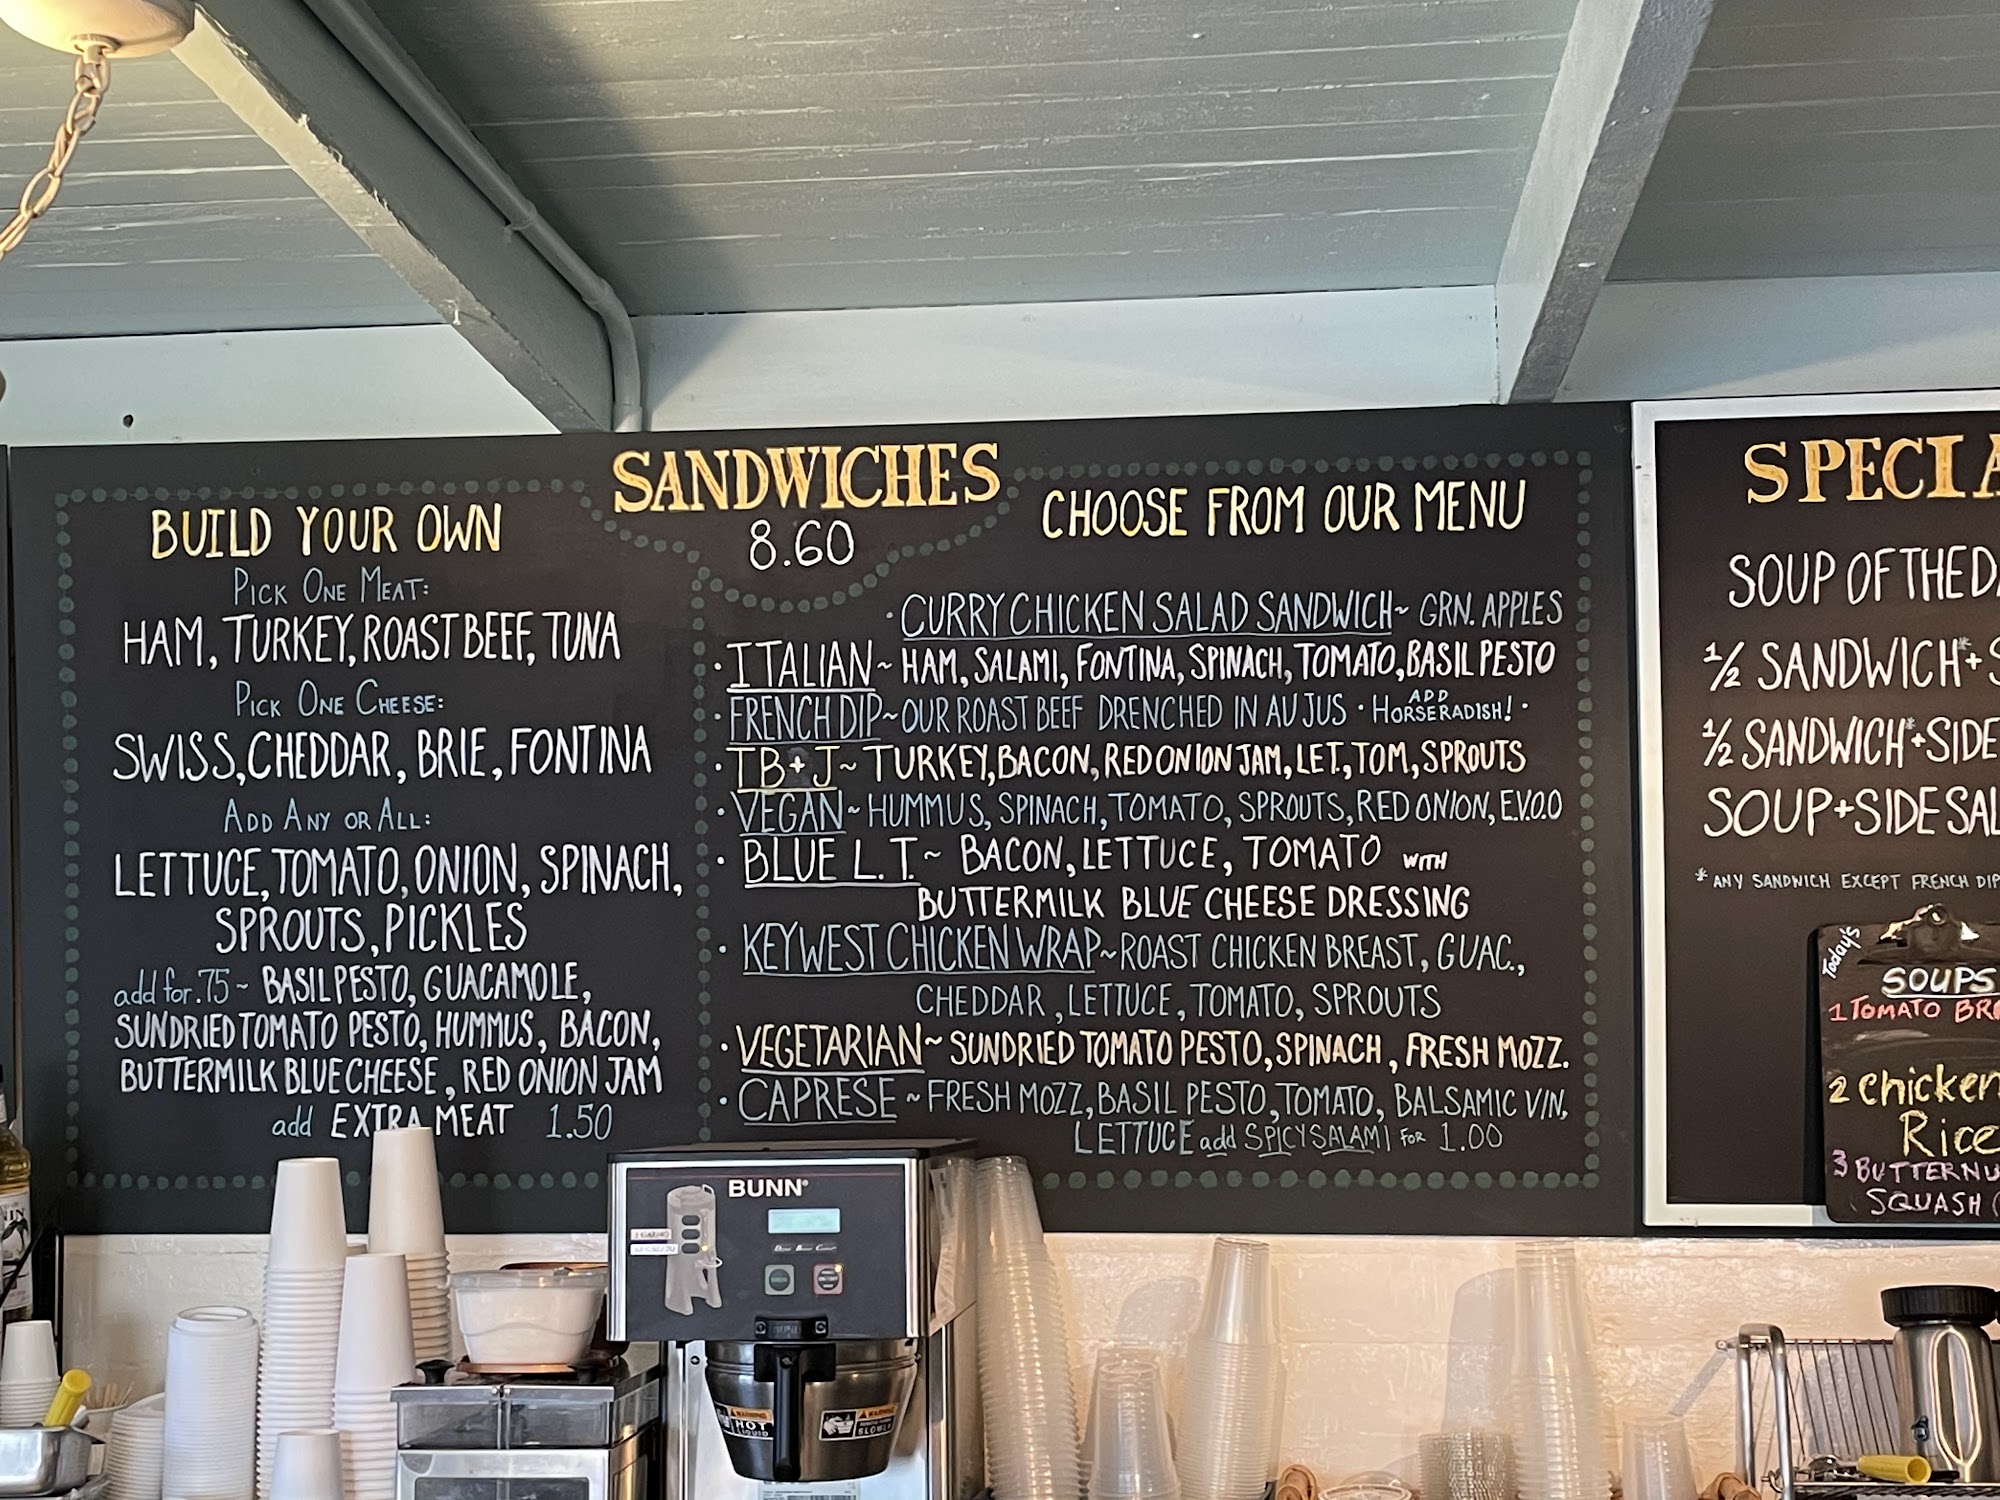 SANDWICHES
8.60
BUILD YOUR OWN
PICK ONE MEAT:
HAM, TURKEY, ROAST BEEF, TUNA
PICK ONE CHEESE:
SWISS, CHEDDAR, BRIE, FONTINA
ADD ANY OR ALL:
LETTUCE, TOMATO, ONION, SPINACH,
SPROUTS, PICKLES
add for .75 ~ BASIL PESTO, GUACAMOLE,
SUNDRIED TOMATO PESTO, HUMMUS, BACON,
BUTTERMILK BLUE CHEESE, RED ONION JAM
add EXTRA MEAT 1.50
CHOOSE FROM OUR MENU
· CURRY CHICKEN SALAD SANDWICH ~ GRN. APPLES
· ITALIAN ~ HAM, SALAMI, FONTINA, SPINACH, TOMATO, BASIL PESTO
· FRENCH DIP ~ OUR ROAST BEEF DRENCHED IN AU JUS · ADD HORSERADISH! ·
· TB + J ~ TURKEY, BACON, RED ONION JAM, LET., TOM, SPROUTS
· VEGAN ~ HUMMUS, SPINACH, TOMATO, SPROUTS, RED ONION, E.V.O.O
· BLUE L.T. ~ BACON, LETTUCE, TOMATO WITH
BUTTERMILK BLUE CHEESE DRESSING
· KEY WEST CHICKEN WRAP ~ ROAST CHICKEN BREAST, GUAC.,
CHEDDAR, LETTUCE, TOMATO, SPROUTS
· VEGETARIAN ~ SUNDRIED TOMATO PESTO, SPINACH, FRESH MOZZ.
· CAPRESE ~ FRESH MOZZ, BASIL PESTO, TOMATO, BALSAMIC VIN,
LETTUCE add SPICY SALAMI FOR 1.00
SPECIA
SOUP OF THE DA
1/2 SANDWICH* + S
1/2 SANDWICH* + SIDE
SOUP + SIDE SAL
* ANY SANDWICH EXCEPT FRENCH DIP
Today's
SOUPS
1 TOMATO BR
2 Chicken
Rice
3 BUTTERNU
SQUASH (
BUNN
WARNING
HOT
LIQUID